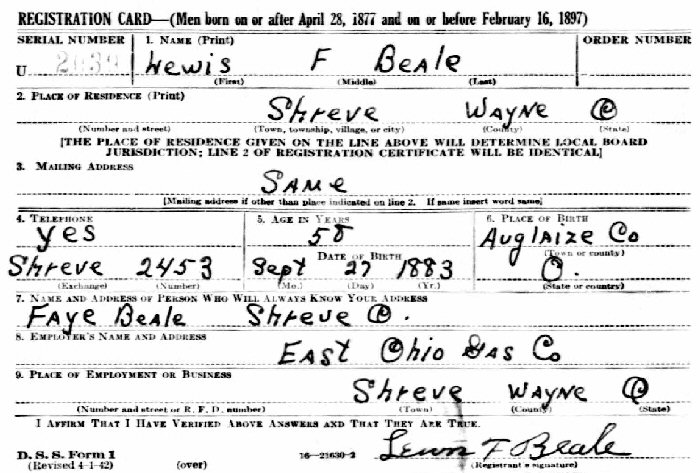 REGISTRATION CARD—(Men born on or after April 28, 1877 and on or before February 16, 1897)
SERIAL NUMBER 1. NAME (Print) ORDER NUMBER
U Lewis F Beale
(First) (Middle) (Last)
2. PLACE OF RESIDENCE (Print)
Shreve Wayne O
(Number and street) (Town, township, village, or city) (County) (State)
[THE PLACE OF RESIDENCE GIVEN ON THE LINE ABOVE WILL DETERMINE LOCAL BOARD
JURISDICTION; LINE 2 OF REGISTRATION CERTIFICATE WILL BE IDENTICAL]
3. MAILING ADDRESS
SAME
[Mailing address if other than place indicated on line 2. If same insert word same]
4. TELEPHONE 5. AGE IN YEARS 6. PLACE OF BIRTH
yes 58 Auglaize Co
DATE OF BIRTH (Town or county)
Shreve 2453 Sept 27 1883 O.
(Exchange) (Number) (Mo.) (Day) (Yr.) (State or country)
7. NAME AND ADDRESS OF PERSON WHO WILL ALWAYS KNOW YOUR ADDRESS
FAYE BEALE Shreve O.
8. EMPLOYER'S NAME AND ADDRESS
EAST Ohio GAS Co
9. PLACE OF EMPLOYMENT OR BUSINESS
Shreve WAYNE O
(Number and street or R. F. D. number) (Town) (County) (State)
I AFFIRM THAT I HAVE VERIFIED ABOVE ANSWERS AND THAT THEY ARE TRUE.
D. S. S. Form 1
(Revised 4-1-42) (over) 16—21630-2 Lewis F Beale
(Registrant's signature)